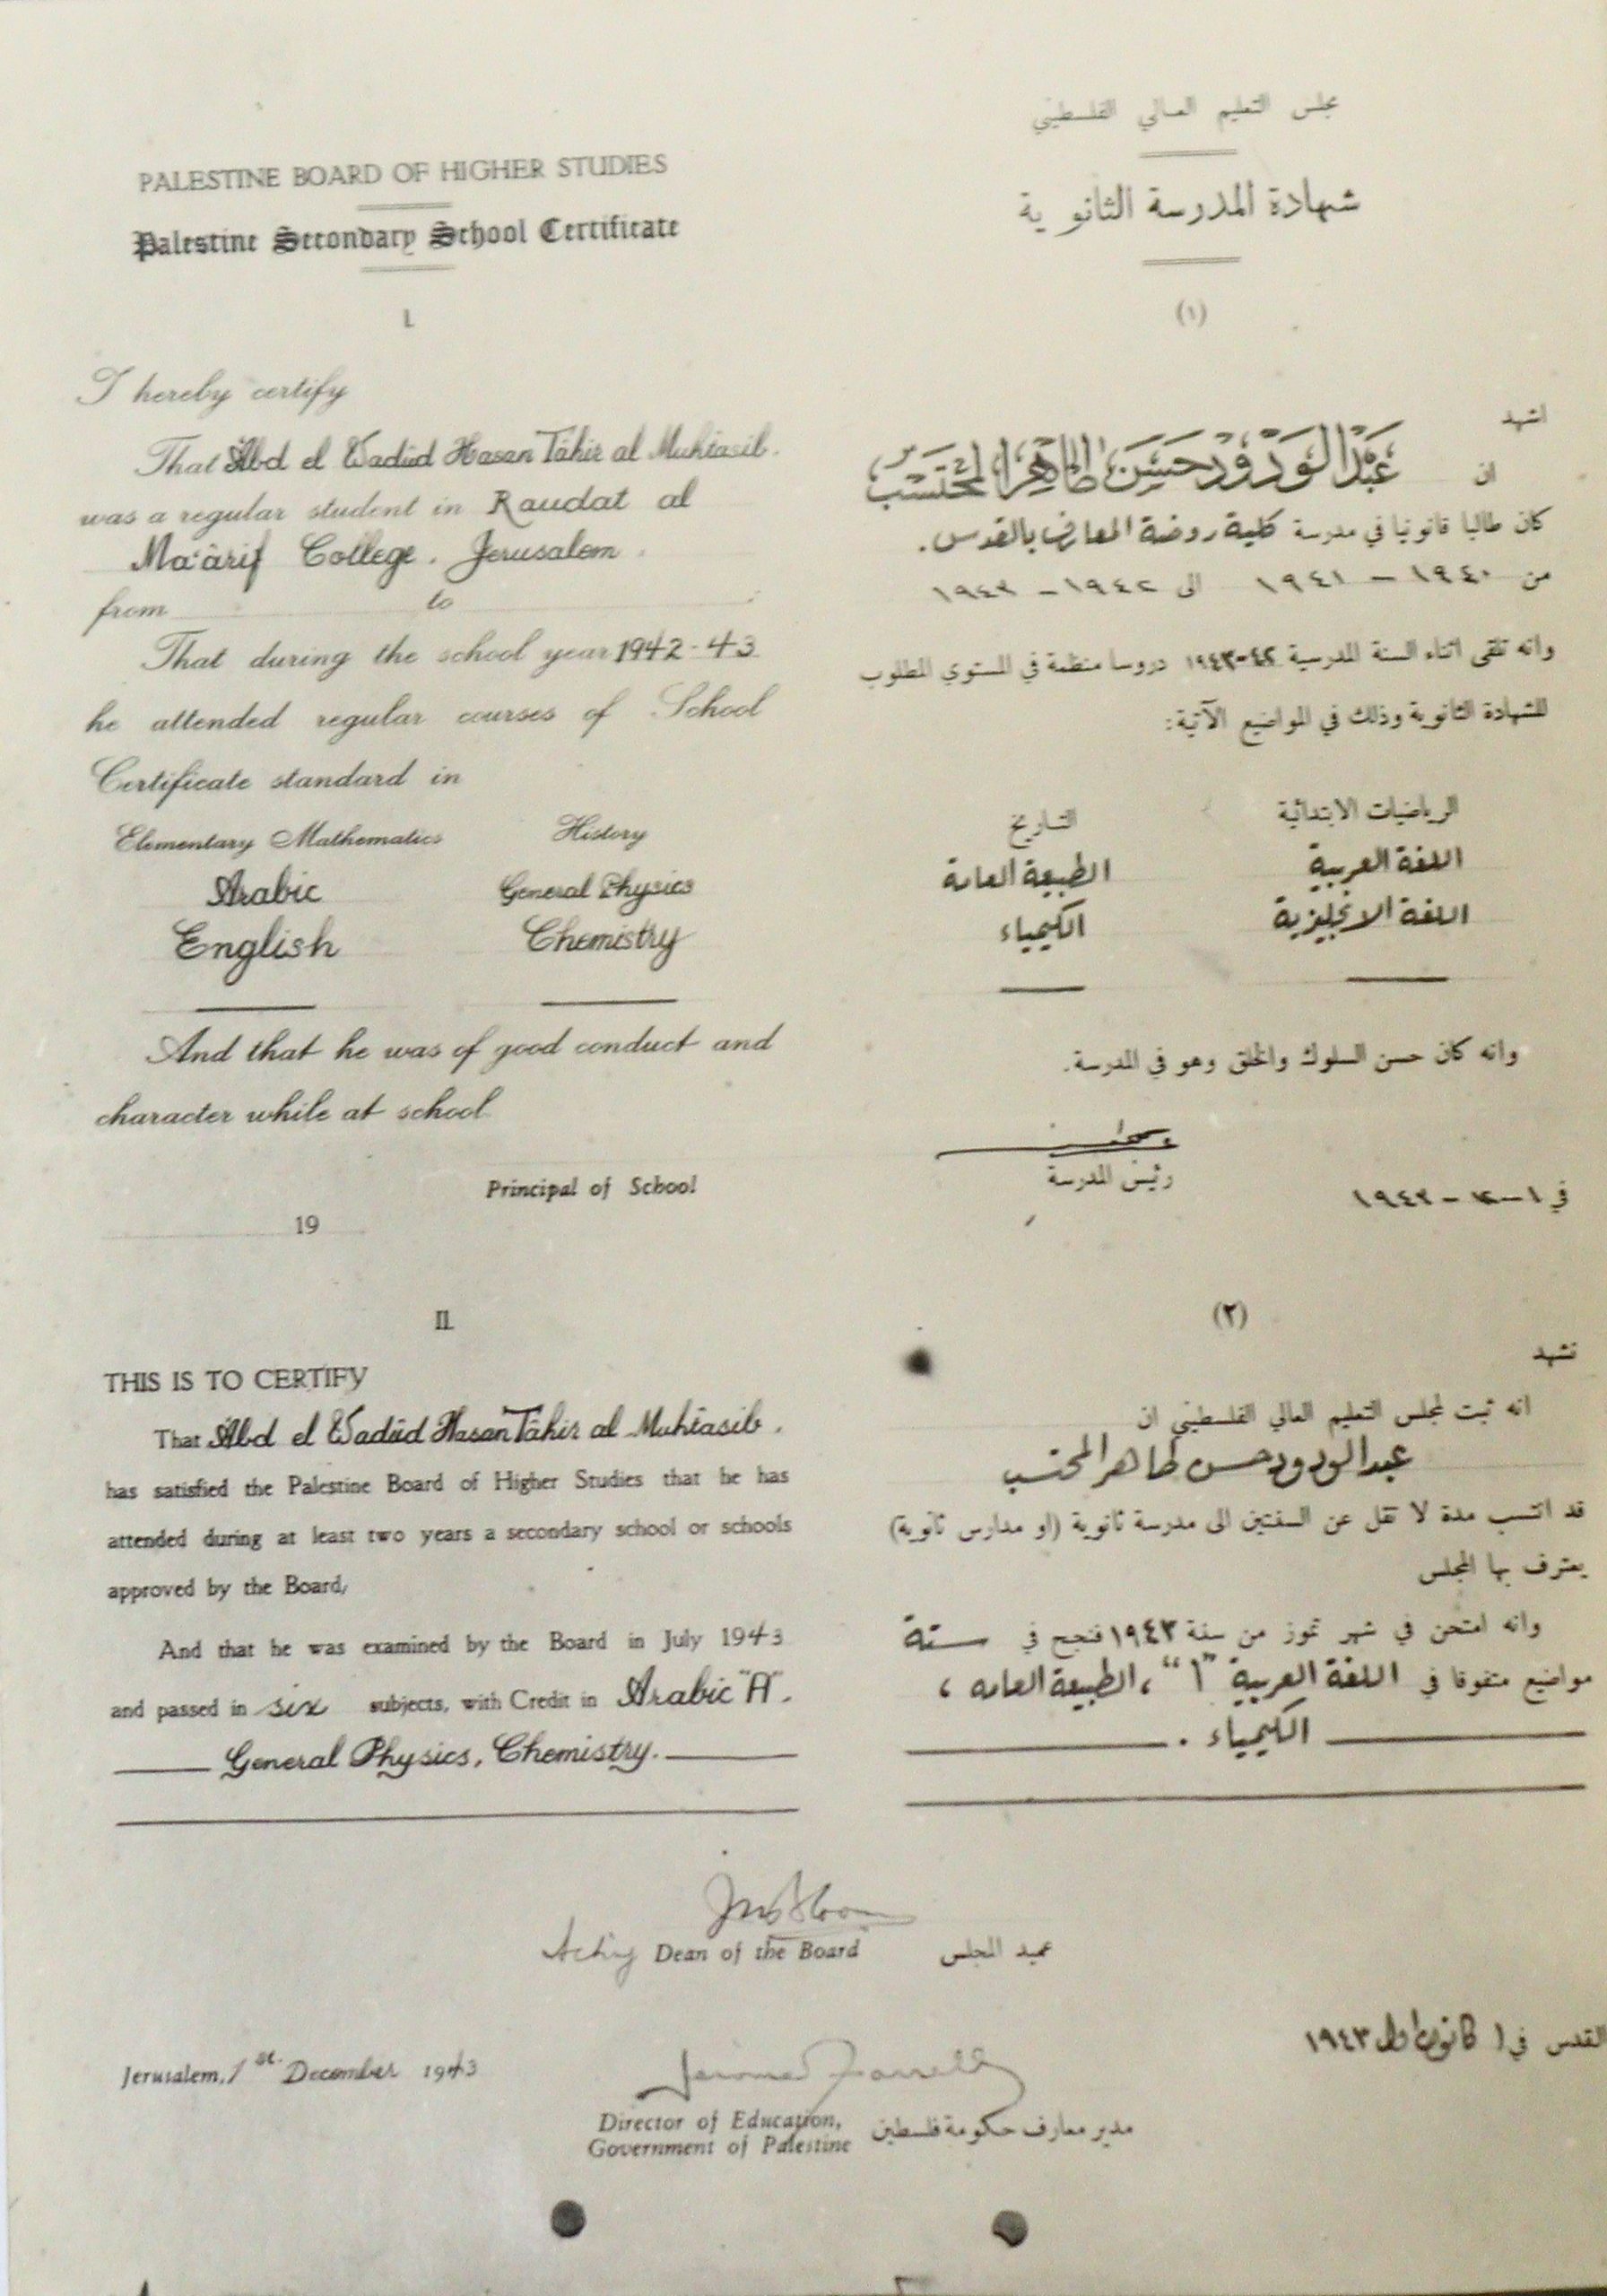 PALESTINE BOARD OF HIGHER STUDIES
Palestine Secondary School Certificate
I.
I hereby certify
That Abd el Wadūd Hasan Tāhir al Muhtasib.
was a regular student in Raudat al
Ma'ārif College. Jerusalem.
from to
That during the school year 1942-43
he attended regular courses of School
Certificate standard in
Elementary Mathematics History
Arabic General Physics
English Chemistry
And that he was of good conduct and
character while at school
Principal of School
19
II.
THIS IS TO CERTIFY
That Abd el Wadūd Hasan Tāhir al Muhtasib.
has satisfied the Palestine Board of Higher Studies that he has
attended during at least two years a secondary school or schools
approved by the Board,
And that he was examined by the Board in July 1943
and passed in six subjects, with Credit in Arabic "A".
General Physics, Chemistry.
مجلس التعليم العالي الفلسطيني
شهادة المدرسة الثانوية
(١)
اشهد
ان عَبْدُ الوَدُوْد حَسَن طَاهِر المُحْتَسَب
كان طالبا قانونيا في مدرسة كلية روضة المعارف بالقدس.
من ١٩٤٠ – ١٩٤١ الى ١٩٤٢ – ١٩٤٣
وانه تلقى اثناء السنة المدرسية ٤٢-١٩٤٣ دروسا منظمة في المستوي المطلوب
للشهادة الثانوية وذلك في المواضيع الآتية:
الرياضيات الابتدائية التاريخ
اللغة العربية الطبيعة العامة
اللغة الانجليزية الكيمياء
وانه كان حسن السلوك والخلق وهو في المدرسة.
رئيس المدرسة
في ١٩٤٣
(٢)
نشهد
انه ثبت لمجلس التعليم العالي الفلسطيني ان
عبد الودود حسن طاهر المحتسب
قد انتسب مدة لا تقل عن السنتين الى مدرسة ثانوية (او مدارس ثانوية)
يعترف بها المجلس
وانه امتحن في شهر تموز من سنة ١٩٤٣ فنجح في ستة
مواضيع متفوقا في اللغة العربية "ا"، الطبيعة العامه،
الكيمياء.
Acting Dean of the Board عميد المجلس
Jerusalem, 1st. December 1943
القدس في ١ كانون اول ١٩٤٣
Jerome Farrell
Director of Education, مدير معارف حكومة فلسطين
Government of Palestine